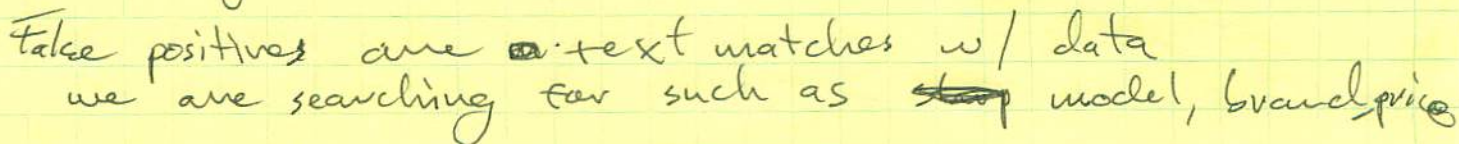 False positives are text matches w/ data
we are searching for such as model, brand, price